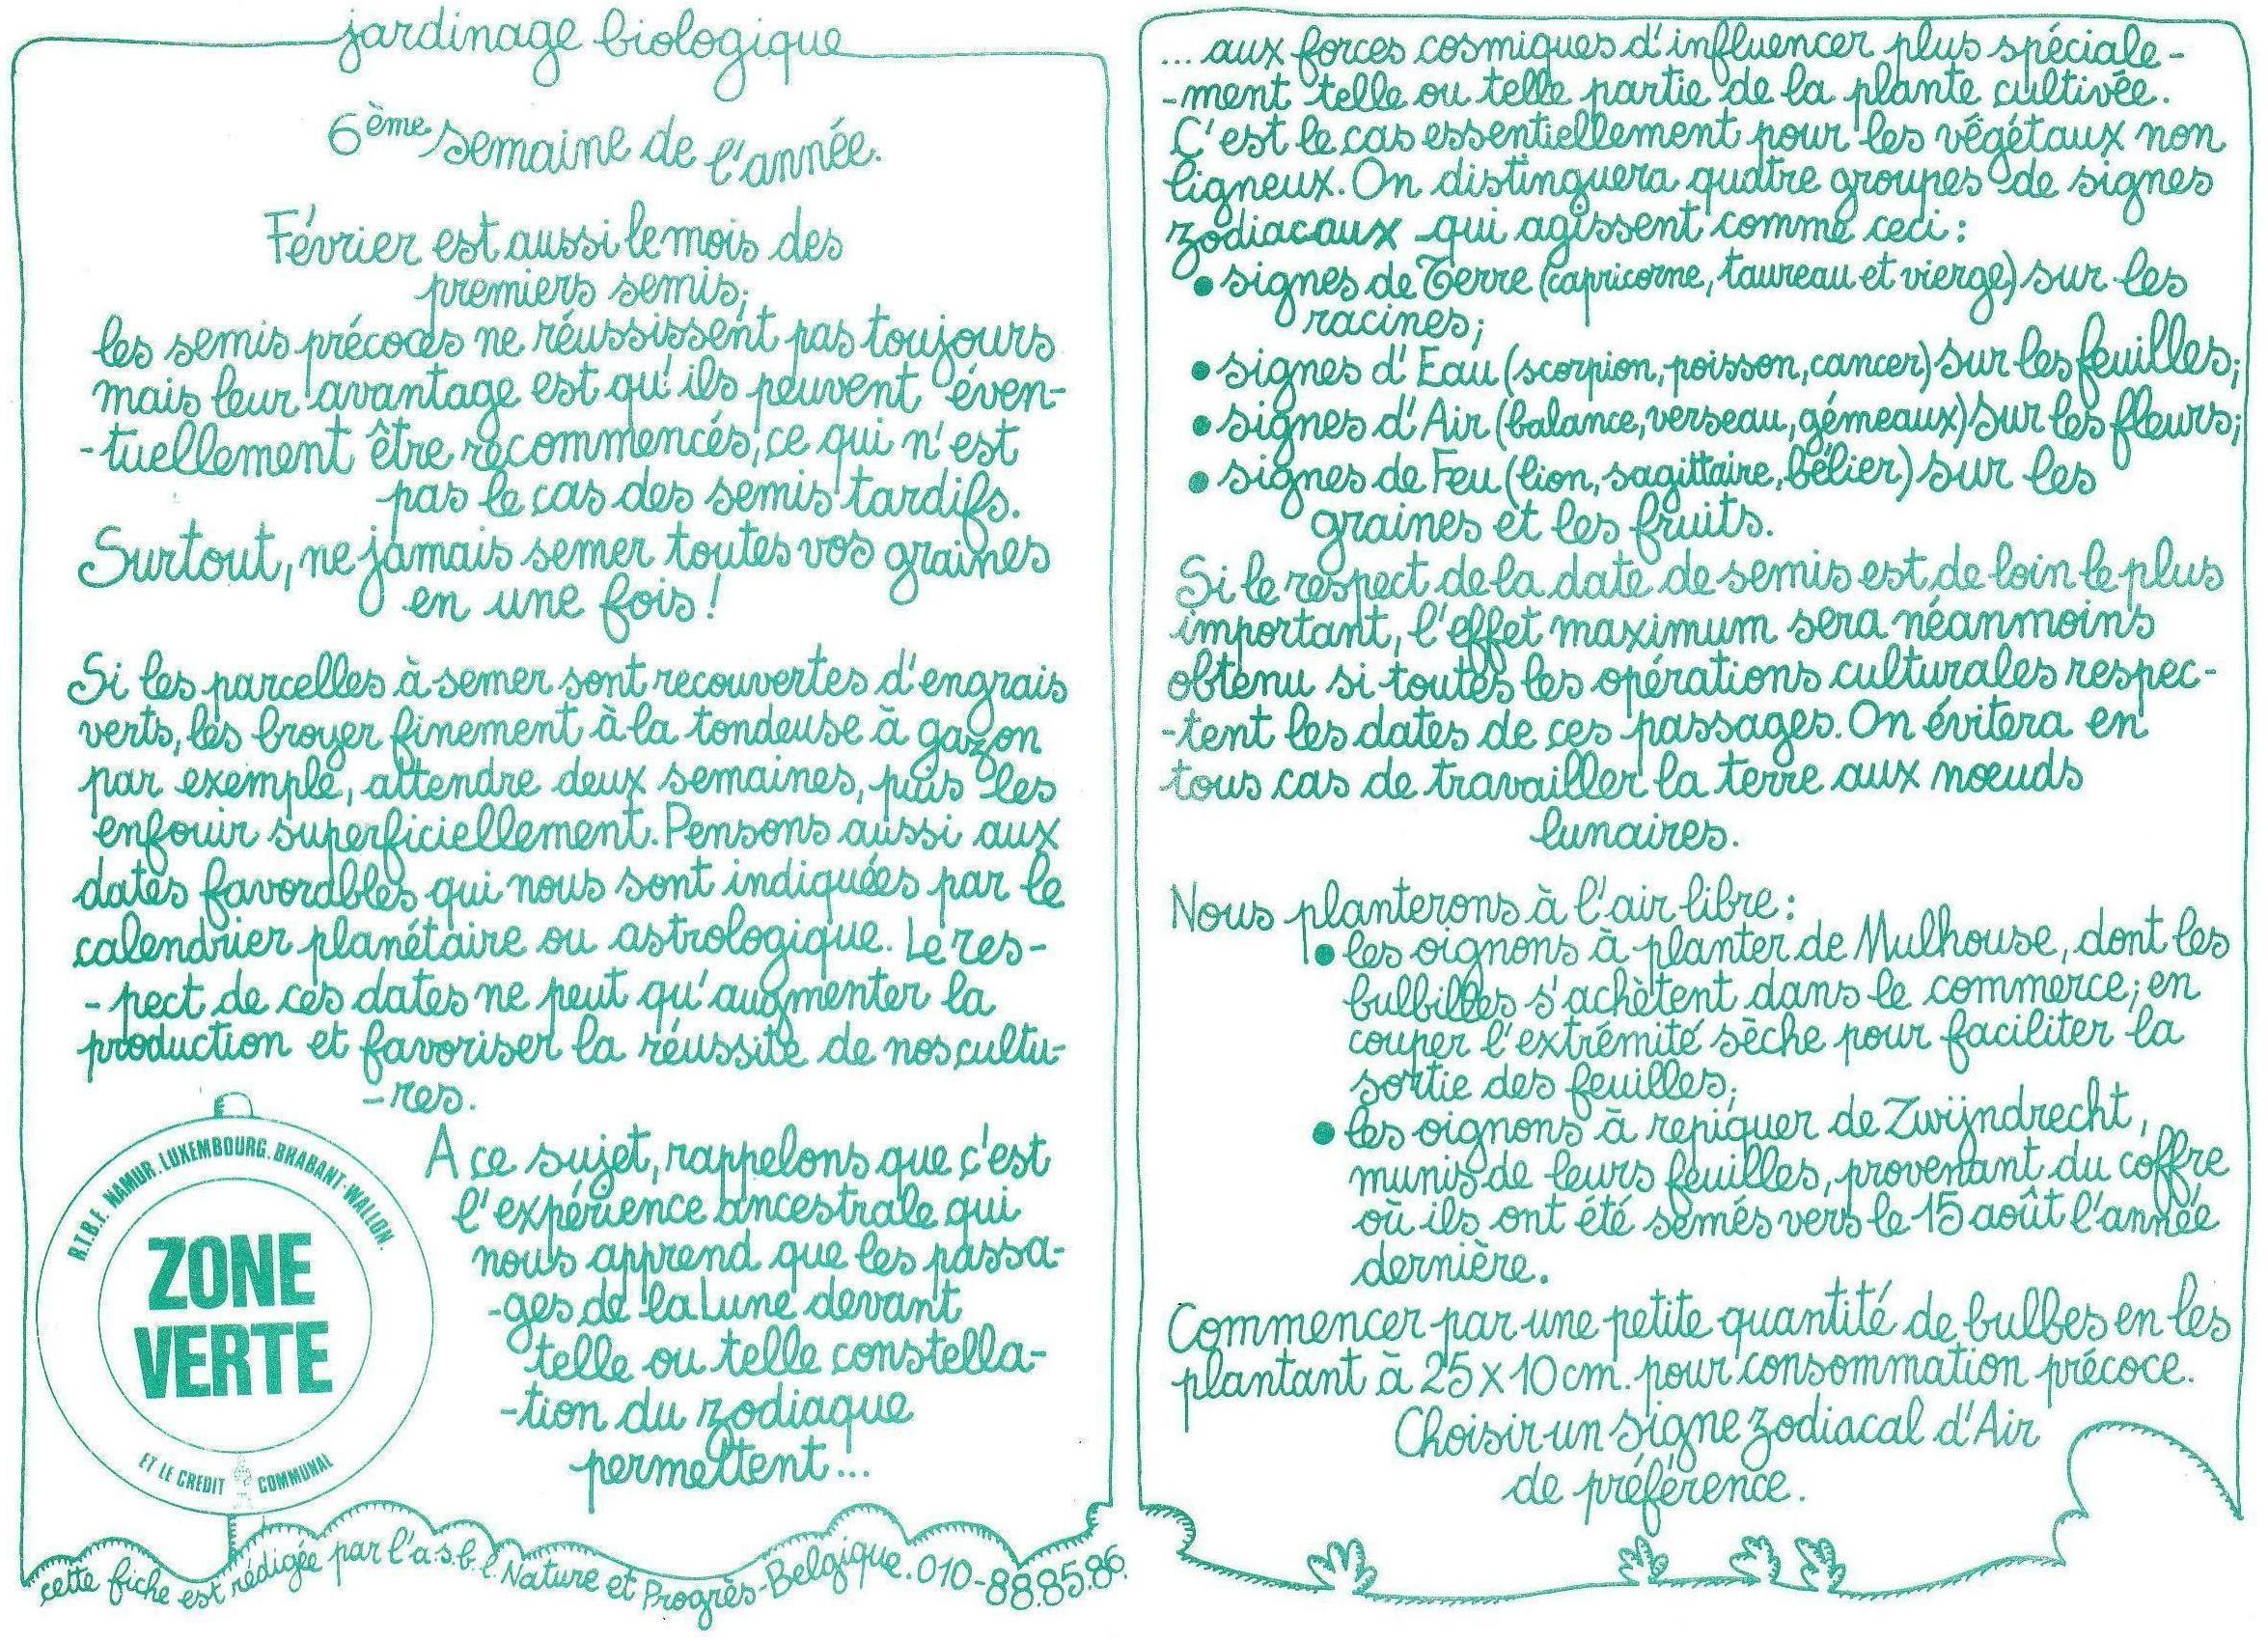 jardinage biologique
6ème semaine de l'année.
Février est aussi le mois des
premiers semis;
les semis précoces ne réussissent pas toujours
mais leur avantage est qu'ils peuvent éven-
-tuellement être recommencés, ce qui n'est
pas le cas des semis tardifs.
Surtout, ne jamais semer toutes vos graines
en une fois!
Si les parcelles à semer sont recouvertes d'engrais
verts, les broyer finement à la tondeuse à gazon
par exemple, attendre deux semaines, puis les
enfouir superficiellement. Pensons aussi aux
dates favorables qui nous sont indiquées par le
calendrier planétaire ou astrologique. Le res-
-pect de ces dates ne peut qu'augmenter la
production et favoriser la réussite de nos cultu-
-res.
A ce sujet, rappelons que c'est
l'expérience ancestrale qui
nous apprend que les passa-
-ges de la Lune devant
telle ou telle constella-
-tion du zodiaque
permettent...
R.T.B.F. NAMUR. LUXEMBOURG. BRABANT-WALLON.
ZONE
VERTE
ET LE CREDIT COMMUNAL
cette fiche est rédigée par l'a.s.b.l. Nature et Progrès-Belgique. 010-88.85.86.
... aux forces cosmiques d'influencer plus spéciale-
-ment telle ou telle partie de la plante cultivée.
C'est le cas essentiellement pour les végétaux non
ligneux. On distinguera quatre groupes de signes
zodiacaux qui agissent comme ceci:
• signes de Terre (capricorne, taureau et vierge) sur les
racines;
• signes d'Eau (scorpion, poisson, cancer) sur les feuilles;
• signes d'Air (balance, verseau, gémeaux) sur les fleurs;
• signes de Feu (lion, sagittaire, bélier) sur les
graines et les fruits.
Si le respect de la date de semis est de loin le plus
important, l'effet maximum sera néanmoins
obtenu si toutes les opérations culturales respec-
-tent les dates de ces passages. On évitera en
tous cas de travailler la terre aux nœuds
lunaires.
Nous planterons à l'air libre:
• les oignons à planter de Mulhouse, dont les
bulbilles s'achètent dans le commerce; en
couper l'extrémité sèche pour faciliter la
sortie des feuilles;
• les oignons à repiquer de Zwijndrecht,
munis de leurs feuilles, provenant du coffre
où ils ont été semés vers le 15 août l'année
dernière.
Commencer par une petite quantité de bulbes en les
plantant à 25 x 10 cm. pour consommation précoce.
Choisir un signe zodiacal d'Air
de préférence.